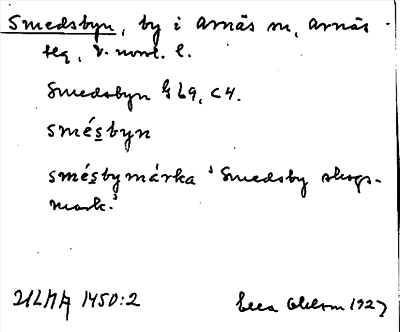 Smedsbyn, by i Arnäs sn, Arnäs
teg, V. norrl. l.
Smedsbyn G L9, C4.
smésbyn
smésbymárka 'Smedsby skogs-
mark.'
ULMA 1450:2 1927